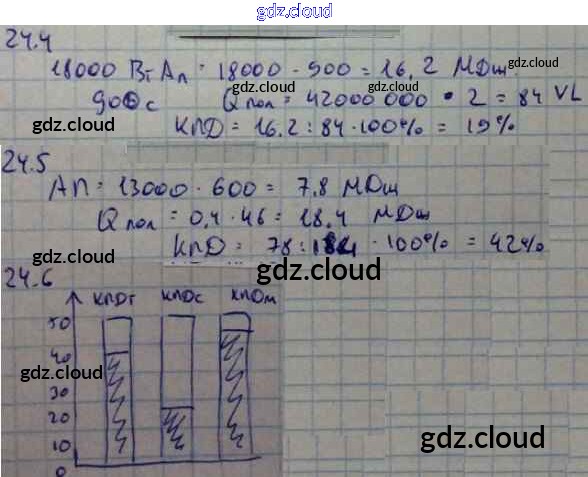 gdz.cloud
24.4
18000 Вт Ап = 18000 · 900 = 16,2 МДж gdz.cloud
900 с Qпол = 42000 000 · 2 = 84 VL
gdz.cloud gdz.cloud
КПД = 16,2 : 84 · 100% = 19%
24.5
АП = 13000 · 600 = 7,8 МДж
gdz.cloud
Qпол = 0,4 · 46 = 18,4 МДж
КПД = 78 : 184 · 100% = 42%
gdz.cloud
24.6
КПДт КПДс КПДм
50
40
gdz.cloud gdz.cloud
30
20
10
gdz.cloud
0